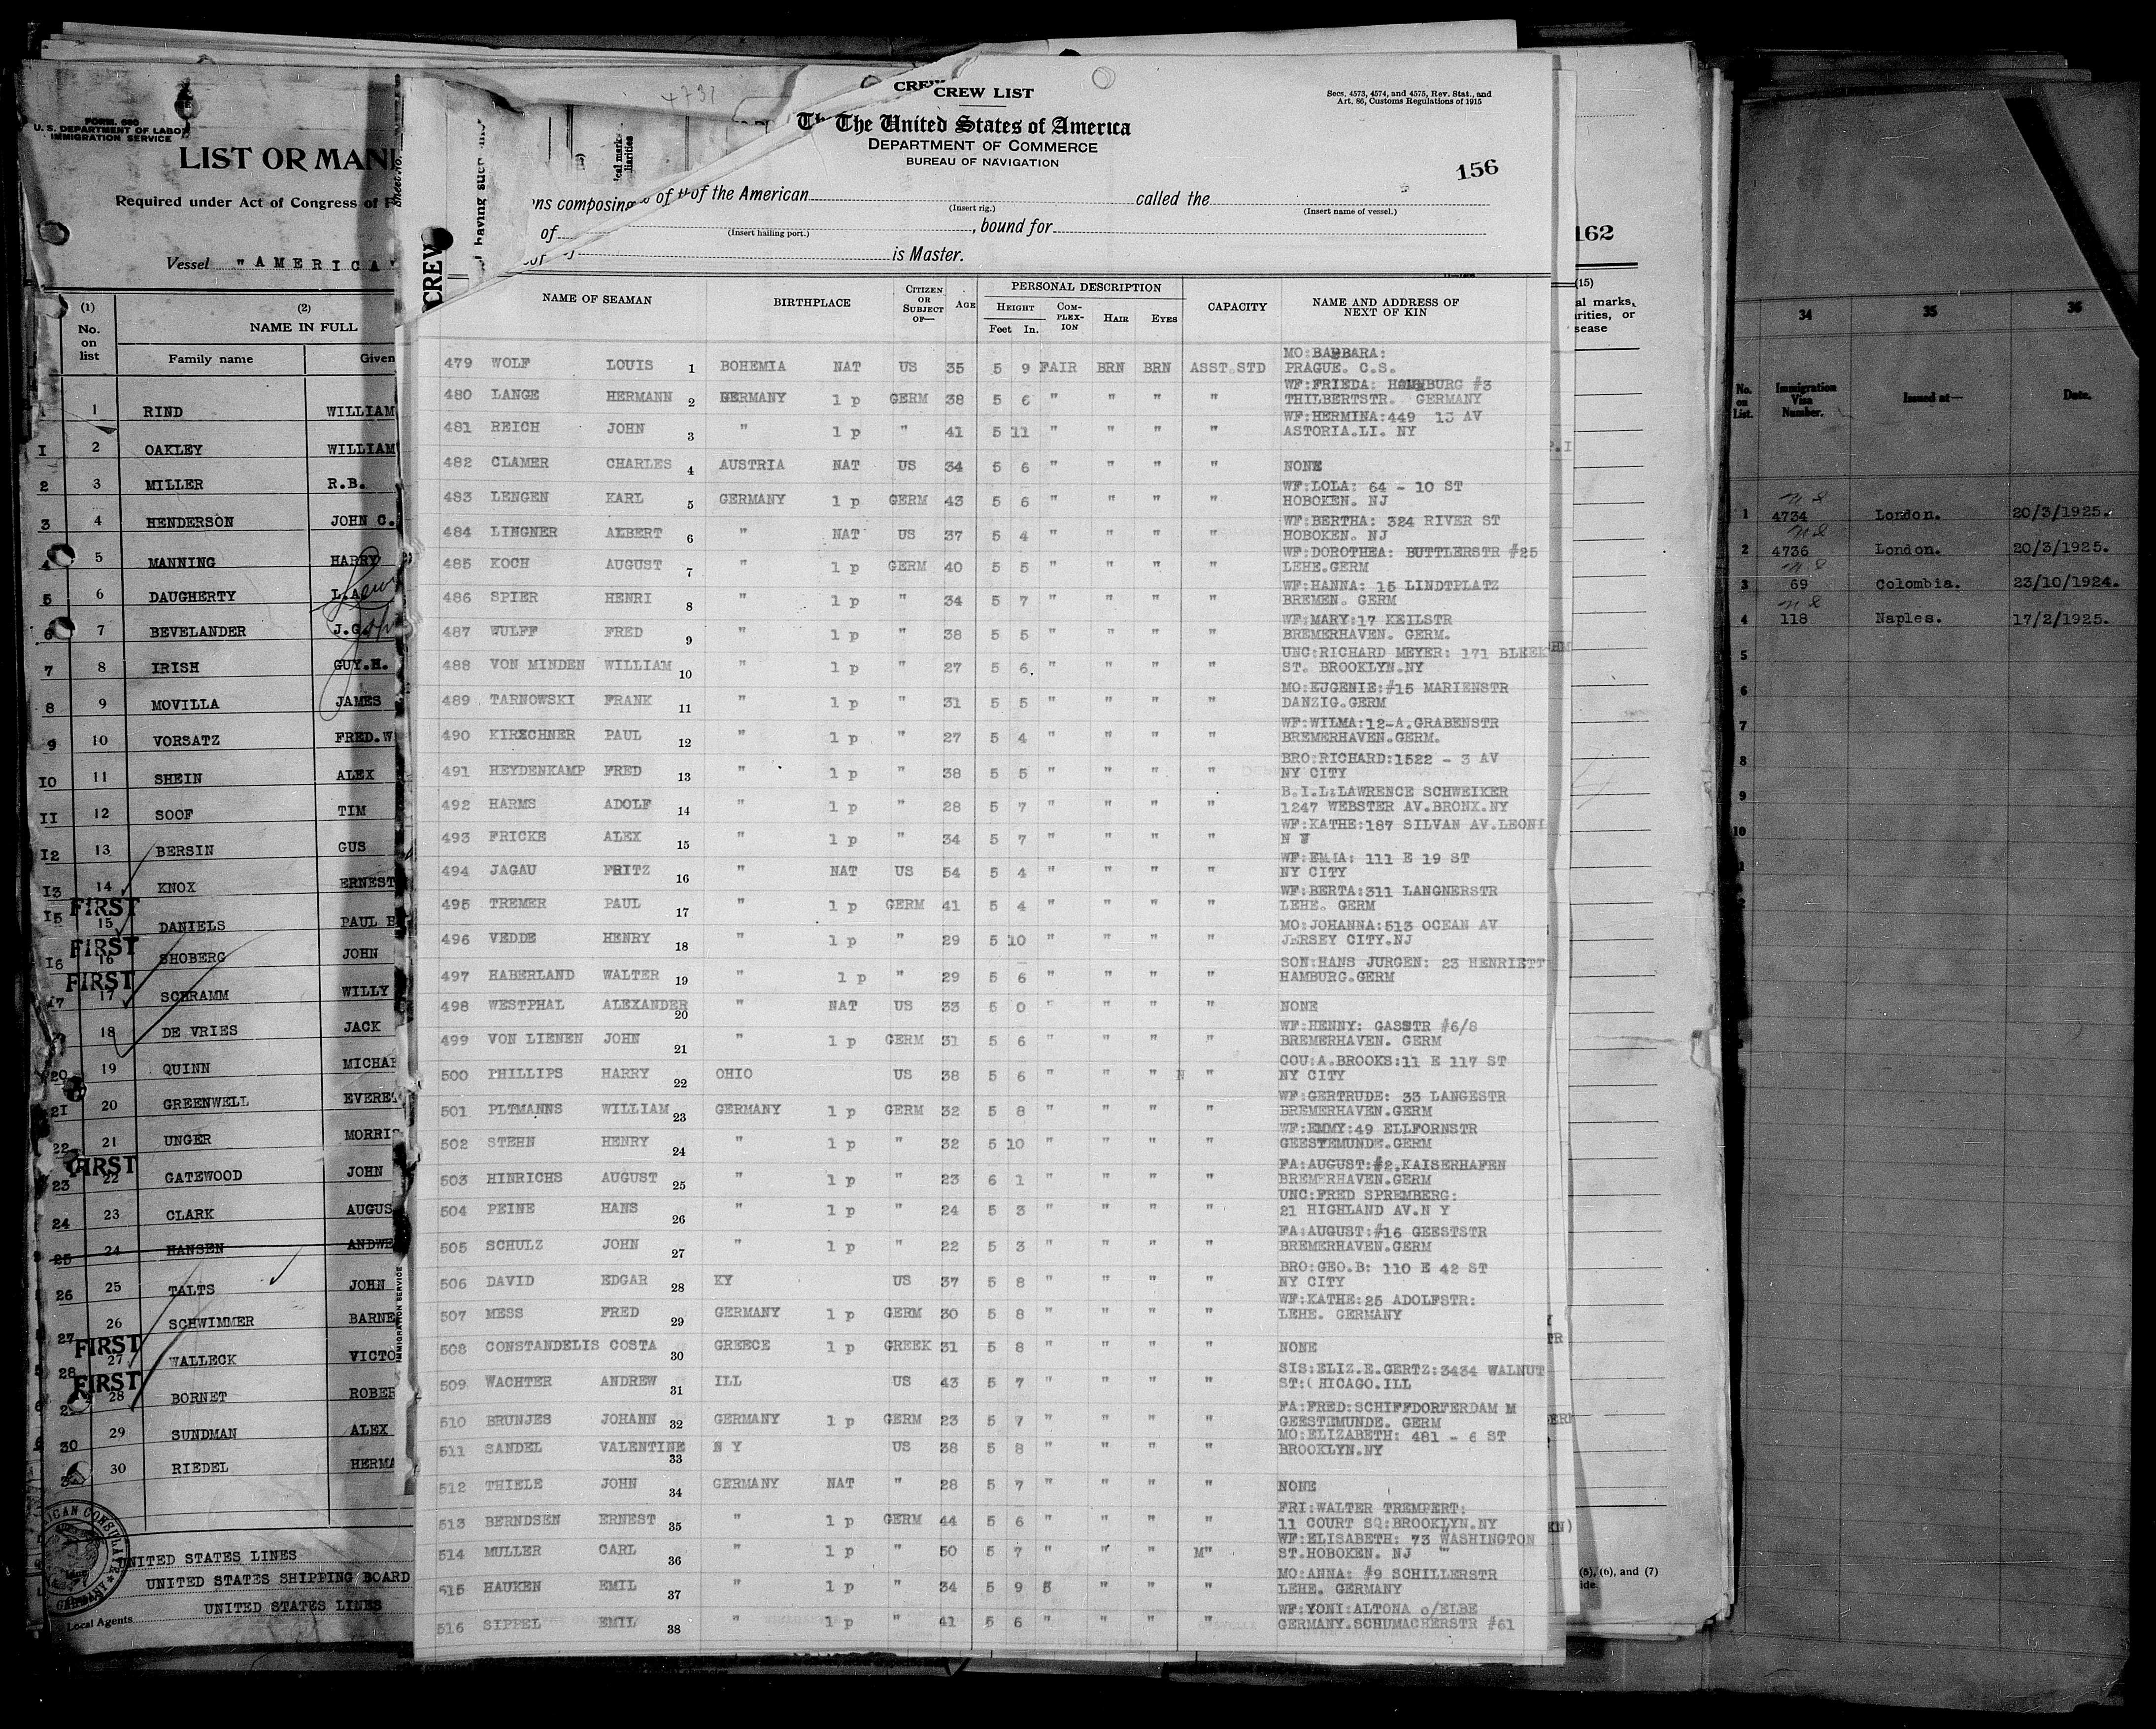 FORM. 680
U. S. DEPARTMENT OF LABOR
IMMIGRATION SERVICE
LIST OR MANI
Required under Act of Congress of F
Vessel "AMERICA"
(1) (2)
No. on list NAME IN FULL
Family name Given
1 RIND WILLIAM
I 2 OAKLEY WILLIAM
2 3 MILLER R.B.
3 4 HENDERSON JOHN C.
4 5 MANNING HARRY
5 6 DAUGHERTY L.A.
6 7 BEVELANDER J.G.
7 8 IRISH GUY.H.
8 9 MOVILLA JAMES
9 10 VORSATZ FRED.W
I0 11 SHEIN ALEX
II 12 SOOF TIM
I2 13 BERSIN GUS
I3 14 KNOX ERNEST
FIRST
I5 15 DANIELS PAUL B
FIRST
I6 16 SHOBERG JOHN
FIRST
I7 17 SCHRAMM WILLY
18 DE VRIES JACK
20 19 QUINN MICHAE
2I 20 GREENWELL EVERET
22 21 UNGER MORRIS
FIRST
23 22 GATEWOOD JOHN
24 23 CLARK AUGUS
25 24 HANSEN ANDWE
26 25 TALTS JOHN
27 26 SCHWIMMER BARNE
FIRST
28 27 WALLECK VICTO
FIRST
28 BORNET ROBER
30 29 SUNDMAN ALEX
30 RIEDEL HERMA
UNITED STATES LINES
UNITED STATES SHIPPING BOARD
UNITED STATES LINES
Local Agents
4731
CREW LIST
Secs. 4573, 4574, and 4575, Rev. Stat., and
Art. 86, Customs Regulations of 1915
The United States of America
DEPARTMENT OF COMMERCE
BUREAU OF NAVIGATION
156
ns composing of the American called the
(Insert rig.) (Insert name of vessel.)
of , bound for
(Insert hailing port.)
is Master.
CREW
NAME OF SEAMAN BIRTHPLACE CITIZEN OR SUBJECT OF— AGE PERSONAL DESCRIPTION CAPACITY NAME AND ADDRESS OF NEXT OF KIN
HEIGHT COMPLEXION HAIR EYES
Feet In.
479 WOLF LOUIS 1 BOHEMIA NAT US 35 5 9 FAIR BRN BRN ASST.STD MO:BARBARA: PRAGUE. C.S.
480 LANGE HERMANN 2 GERMANY 1 p GERM 38 5 6 " " " " WF:FRIEDA: HAMBURG #3 THILBERTSTR. GERMANY
481 REICH JOHN 3 " 1 p " 41 5 11 " " " " WF:HERMINA:449 13 AV ASTORIA.LI. NY
482 CLAMER CHARLES 4 AUSTRIA NAT US 34 5 6 " " " " NONE
483 LENGEN KARL 5 GERMANY 1 p GERM 43 5 6 " " " " WF:LOLA: 64 - 10 ST HOBOKEN. NJ
484 LINGNER ALBERT 6 " NAT US 37 5 4 " " " " WF:BERTHA: 324 RIVER ST HOBOKEN. NJ
485 KOCH AUGUST 7 " 1 p GERM 40 5 5 " " " " WF:DOROTHEA: BUTTLERSTR #25 LEHE.GERM
486 SPIER HENRI 8 " 1 p " 34 5 7 " " " " WF:HANNA: 15 LINDTPLATZ BREMEN. GERM
487 WULFF FRED 9 " 1 p " 38 5 5 " " " " WF:MARY:17 KEILSTR BREMERHAVEN. GERM.
488 VON MINDEN WILLIAM 10 " 1 p " 27 5 6. " " " " UNC:RICHARD MEYER: 171 BLEEK ST. BROOKLYN.NY
489 TARNOWSKI FRANK 11 " 1 p " 31 5 5 " " " " MO:EUGENIE:#15 MARIENSTR DANZIG.GERM
490 KIRSCHNER PAUL 12 " 1 p " 27 5 4 " " " " WF:WILMA:12-A.GRABENSTR BREMERHAVEN.GERM.
491 HEYDENKAMP FRED 13 " 1 p " 38 5 5 " " " " BRO:RICHARD:1522 - 3 AV NY CITY
492 HARMS ADOLF 14 " 1 p " 28 5 7 " " " " B.I.L:LAWRENCE SCHWEIKER 1247 WEBSTER AV.BRONX.NY
493 FRICKE ALEX 15 " 1 p 34 5 7 " " " " WF:KATHE:187 SILVAN AV.LEONI N J
494 JAGAU FRITZ 16 " NAT US 54 5 4 " " " " WF:EMMA: 111 E 19 ST NY CITY
495 TREMER PAUL 17 " 1 p GERM 41 5 4 " " " " WF:BERTA:311 LANGNERSTR LEHE. GERM
496 VEDDE HENRY 18 " 1 p " 29 5 10 " " " " MO:JOHANNA:513 OCEAN AV JERSEY CITY.NJ
497 HABERLAND WALTER 19 " 1 p " 29 5 6 " " " " SON:HANS JURGEN: 23 HENRIETT HAMBURG.GERM
498 WESTPHAL ALEXANDER 20 " NAT US 33 5 0 " " " " NONE
499 VON LIENEN JOHN 21 " 1 p GERM 31 5 6 " " " " WF:HENNY: GASSTR #6/8 BREMERHAVEN. GERM
500 PHILLIPS HARRY 22 OHIO US 38 5 6 " " " N " COU:A.BROOKS:11 E 117 ST NY CITY
501 PLTMANNS WILLIAM 23 GERMANY 1 p GERM 32 5 8 " " " " WF:GERTRUDE: 33 LANGESTR BREMERHAVEN.GERM
502 STEHN HENRY 24 " 1 p " 32 5 10 " " " " WF:EMMY:49 ELLFORNSTR GEESTEMUNDE.GERM
503 HINRICHS AUGUST 25 " 1 p " 23 6 1 " " " " FA:AUGUST:#2.KAISERHAFEN BREMERHAVEN.GERM
504 PEINE HANS 26 " 1 p " 24 5 3 " " " " UNC:FRED SPREMBERG: 21 HIGHLAND AV.N Y
505 SCHULZ JOHN 27 " 1 p " 22 5 3 " " " " FA:AUGUST:#16 GEESTSTR BREMERHAVEN.GERM
506 DAVID EDGAR 28 KY US 37 5 8 " " " " BRO:GEO.B: 110 E 42 ST NY CITY
507 MESS FRED 29 GERMANY 1 p GERM 30 5 8 " " " " WF:KATHE:25 ADOLFSTR: LEHE. GERMANY
508 CONSTANDELIS COSTA 30 GREECE 1 p GREEK 31 5 8 " " " " NONE
509 WACHTER ANDREW 31 ILL US 43 5 7 " " " " SIS:ELIZ.E.GERTZ:3434 WALNUT ST:CHICAGO.ILL
510 BRUNJES JOHANN 32 GERMANY 1 p GERM 23 5 7 " " " " FA:FRED:SCHIFFDORFERDAM M GEESTEMUNDE. GERM
511 SANDEL VALENTINE 33 N Y US 38 5 8 " " " " MO:ELIZABETH: 481 - 6 ST BROOKLYN.NY
512 THIELE JOHN 34 GERMANY NAT " 28 5 7 " " " " NONE
513 BERNDSEN ERNEST 35 " 1 p GERM 44 5 6 " " " " FRI:WALTER TREMPERT: 11 COURT SQ:BROOKLYN.NY
514 MULLER CARL 36 " 1 p " 50 5 7 " " " M" WF:ELISABETH: 73 WASHINGTON ST.HOBOKEN. NJ
515 HAUKEN EMIL 37 " 1 p " 34 5 9 5 " " " MO:ANNA: #9 SCHILLERSTR LEHE. GERMANY
516 SIPPEL EMIL 38 " 1 p " 41 5 6 " " " " WF:YONI:ALTONA o/ELBE GERMANY.SCHUMACHERSTR #61
162
(15)
al marks,
rities, or
sease
(5), (6), and (7)
ide.
34 35 36
No. on List. Immigration Visa Number. Issued at— Date.
1 4734 London. 20/3/1925.
2 4736 London. 20/3/1925.
3 69 Colombia. 23/10/1924.
4 118 Naples. 17/2/1925.
5
6
7
8
9
10